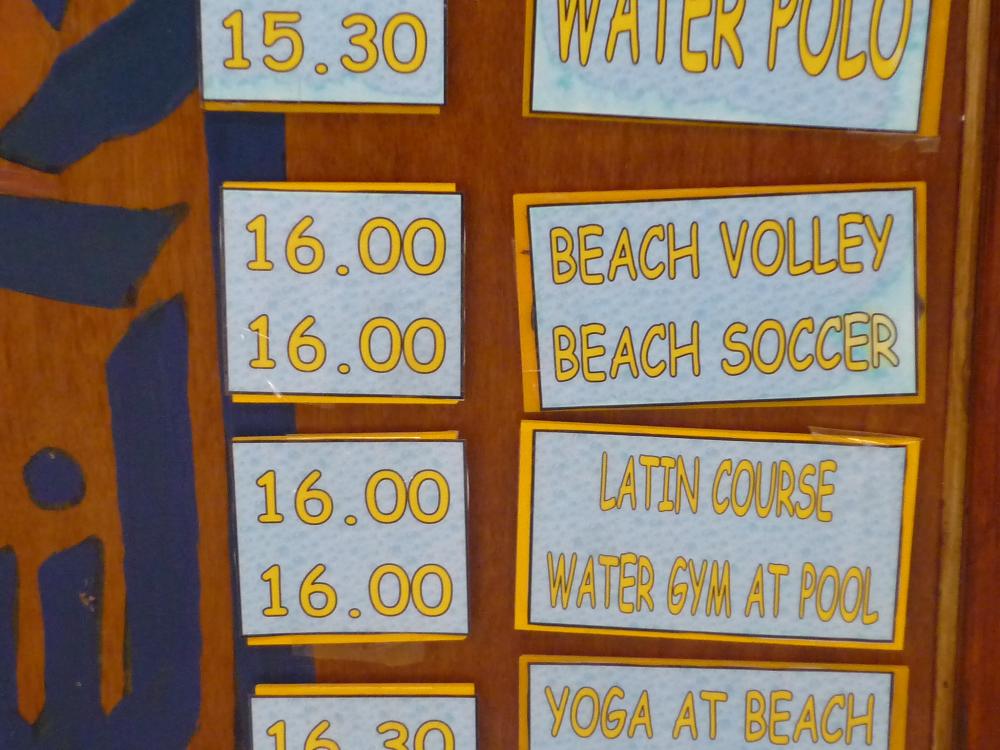 15.30 WATER POLO
16.00 BEACH VOLLEY
16.00 BEACH SOCCER
16.00 LATIN COURSE
16.00 WATER GYM AT POOL
16.30 YOGA AT BEACH